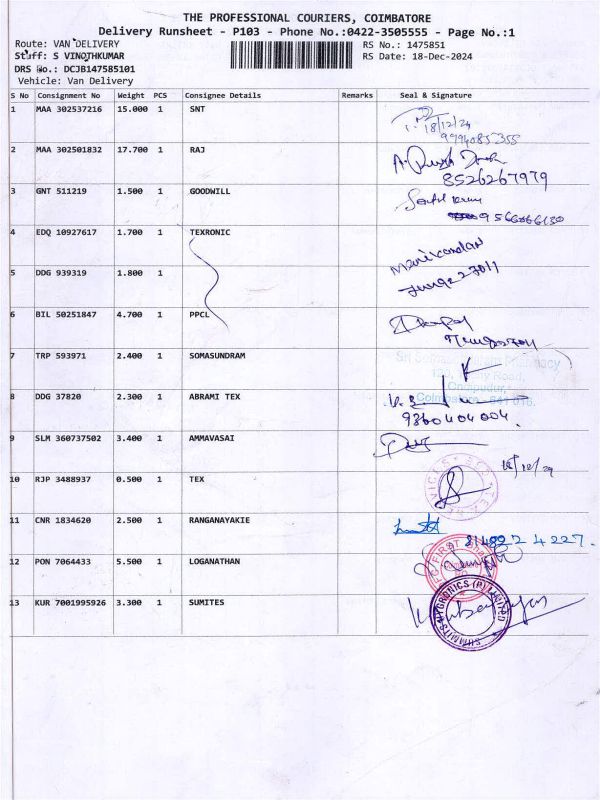 THE PROFESSIONAL COURIERS, COIMBATORE
Delivery Runsheet - P103 - Phone No.:0422-3505555 - Page No.:1
Route: VAN DELIVERY RS No.: 1475851
Staff: S VINOTHKUMAR RS Date: 18-Dec-2024
DRS No.: DCJB147585101
Vehicle: Van Delivery
S No Consignment No Weight PCS Consignee Details Remarks Seal & Signature
1 MAA 302537216 15.000 1 SNT
18/12/24
9994085355
2 MAA 302501832 17.700 1 RAJ
8526267979
3 GNT 511219 1.500 1 GOODWILL
4 EDQ 10927617 1.700 1 TEXRONIC
Manikandan
5 DDG 939319 1.800 1
6 BIL 50251847 4.700 1 PPCL
7 TRP 593971 2.400 1 SOMASUNDRAM
8 DDG 37820 2.300 1 ABRAMI TEX
9360404004.
9 SLM 360737502 3.400 1 AMMAVASAI
18/12/24
10 RJP 3488937 0.500 1 TEX
11 CNR 1834620 2.500 1 RANGANAYAKIE
12 PON 7064433 5.500 1 LOGANATHAN
13 KUR 7001995926 3.300 1 SUMITES